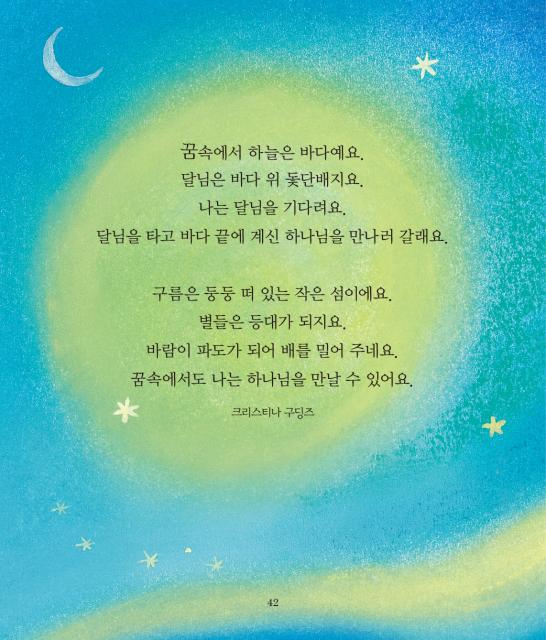 꿈속에서 하늘은 바다예요.
달님은 바다 위 돛단배지요.
나는 달님을 기다려요.
달님을 타고 바다 끝에 계신 하나님을 만나러 갈래요.
구름은 둥둥 떠 있는 작은 섬이에요.
별들은 등대가 되지요.
바람이 파도가 되어 배를 밀어 주네요.
꿈속에서도 나는 하나님을 만날 수 있어요.
크리스티나 구딩즈
42